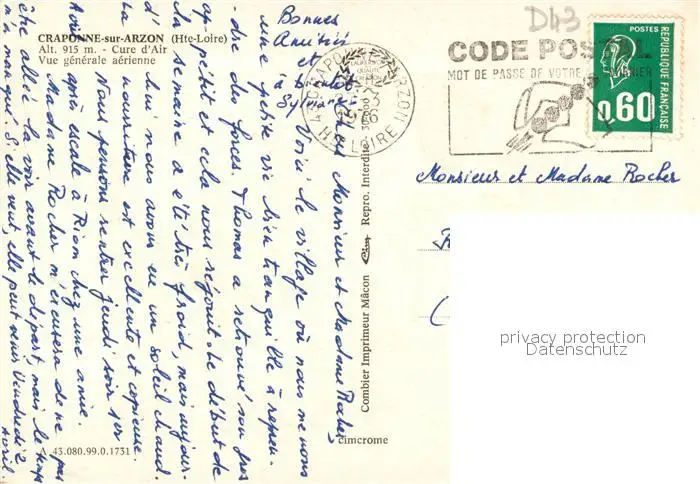 CRAPONNE-sur-ARZON (Hte-Loire)
Alt. 915 m. - Cure d'Air
Vue générale aérienne
Bonnes
Amitiés
et
à
Sylviane
Chers Monsieur et Madame Rocher
Voici le village où nous menons
une petite vie bien tranquille à repren-
-dre des forces. Thomas a retrouvé son gros
appétit et cela nous réjouit. Le début de
la semaine a été très froid, mais aujour-
d'hui nous avons eu un soleil chaud.
La nourriture est excellente et copieuse.
Nous pensons rentrer jeudi soir 1er
Avril après escale à Riom chez une amie.
Madame Rocher m'excusera de ne pas
être allée la voir avant le départ, mais le temps
m'a manqué. Si elle veut, elle peut venir Vendredi 2
Avril.
A 43.080.99.0.1731
Combier Imprimeur Mâcon Cim Repro. Interdite
cimcrome
D43
CODE POSTAL
MOT DE PASSE DE VOTRE COURRIER
HTE LOIRE
POSTES
REPUBLIQUE FRANÇAISE
0,60
Monsieur et Madame Rocher
privacy protection
Datenschutz